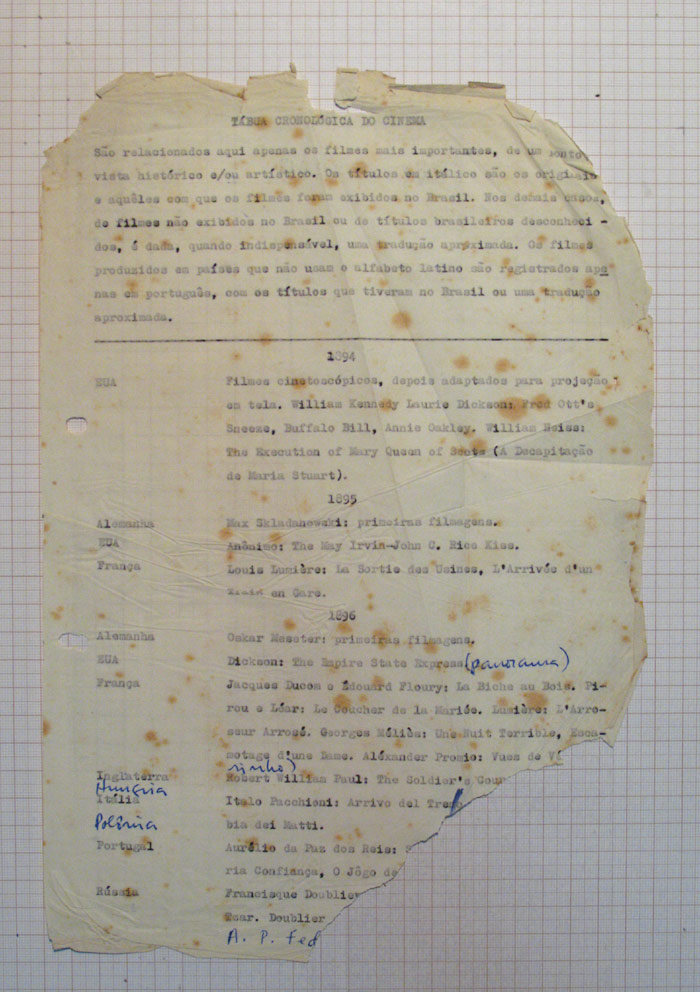 TÁBUA CRONOLÓGICA DO CINEMA
São relacionados aqui apenas os filmes mais importantes, de um ponto
vista histórico e/ou artístico. Os títulos em itálico são os originais
e aquêles com que os filmes foram exibidos no Brasil. Nos demais casos,
de filmes não exibidos no Brasil ou de títulos brasileiros desconheci-
dos, é dada, quando indispensável, uma tradução aproximada. Os filmes
produzidos em países que não usam o alfabeto latino são registrados ape
nas em português, com os títulos que tiveram no Brasil ou uma tradução
aproximada.
1894
EUA Filmes cinetoscópicos, depois adaptados para projeção
em tela. William Kennedy Laurie Dickson: Fred Ott's
Sneeze, Buffalo Bill, Annie Oakley. William Heiss:
The Execution of Mary Queen of Scots (A Decapitação
de Maria Stuart).
1895
Alemanha Max Skladanowski: primeiras filmagens.
EUA Anônimo: The May Irvin-John C. Rice Kiss.
França Louis Lumière: La Sortie des Usines, L'Arrivée d'un
Train en Gare.
1896
Alemanha Oskar Messter: primeiras filmagens.
EUA Dickson: The Empire State Express (panorama)
França Jacques Ducom e Édouard Floury: La Biche au Bois. Pi-
rou e Léar: Le Coucher de la Mariée. Lumière: L'Arro-
seur Arrosé. Georges Méliès: Une Nuit Terrible, Esca-
motage d'une Dame. Aléxander Promio: Vues de Vi
Inglaterra Robert William Paul: The Soldier's Cour
Hungria
Itália Italo Pacchioni: Arrivo del Treno
Polônia bia dei Matti.
Portugal Aurélio da Paz dos Reis:
ria Confiança, O Jôgo de
Rússia Francisque Doublier
Tsar. Doublier
A. P. Fed